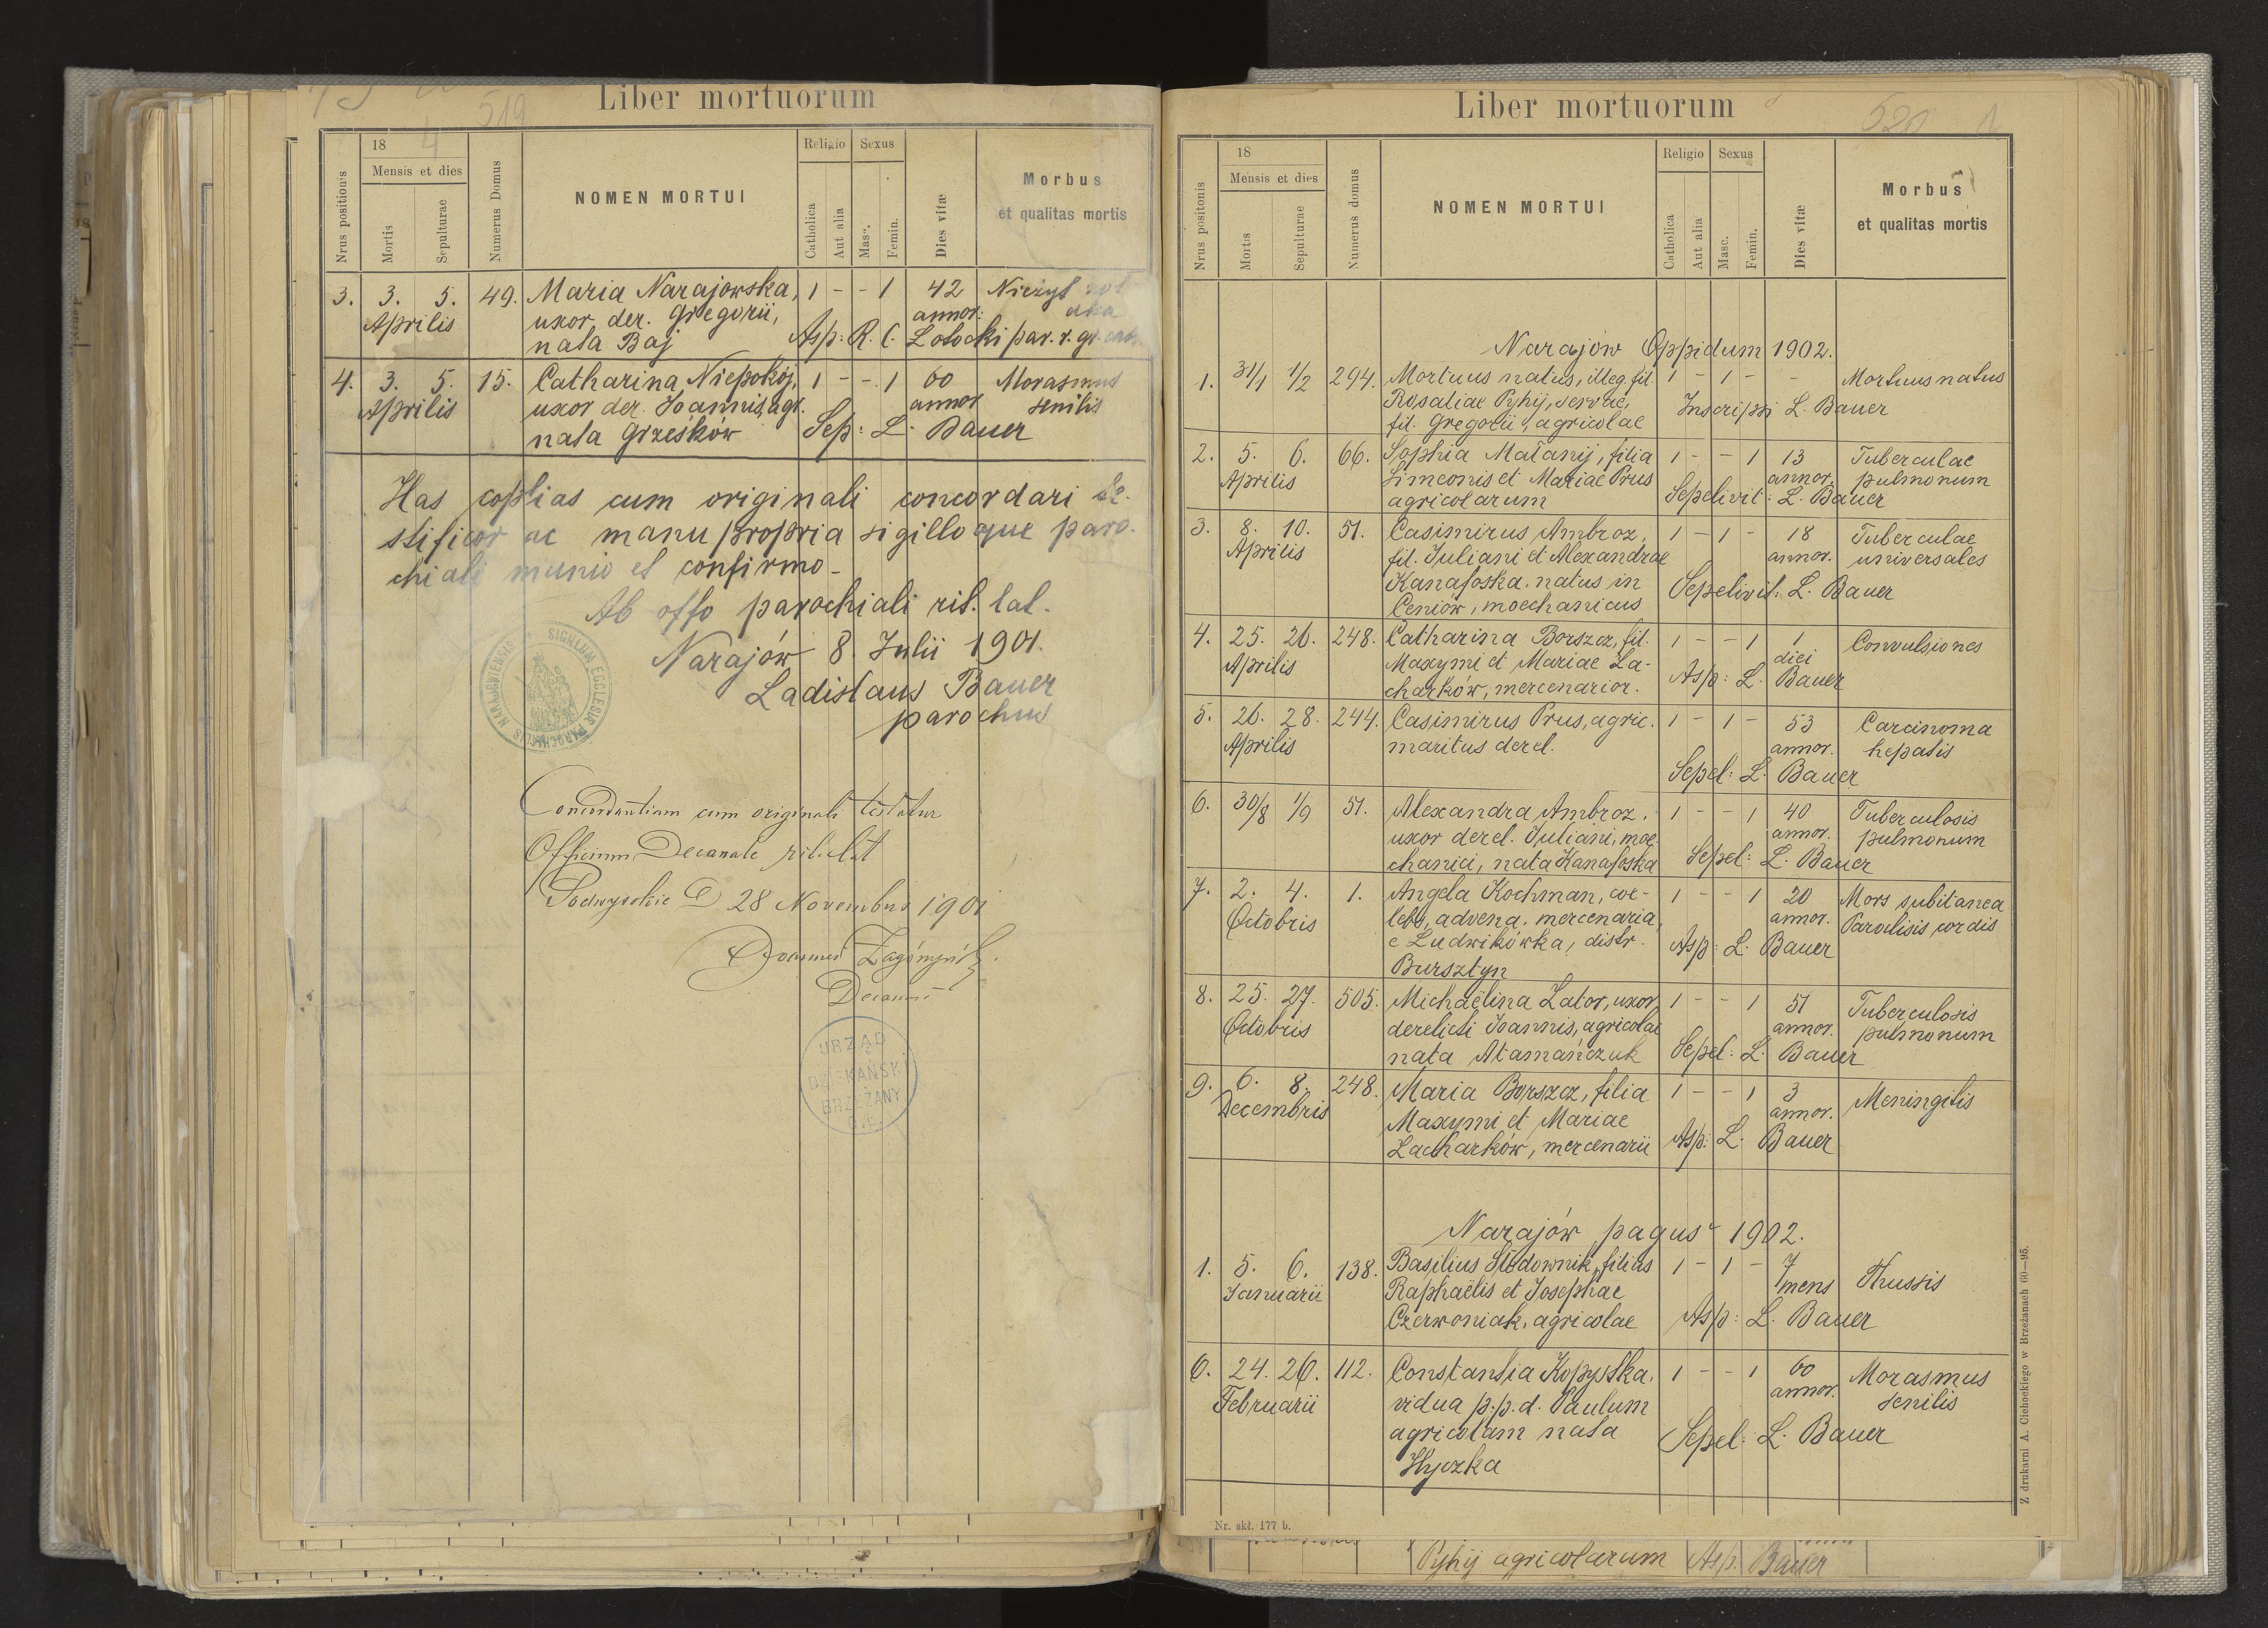 519
Liber mortuorum
Nrus positionis
18
4
Mensis et dies
Mortis
Sepulturae
Numerus Domus
NOMEN MORTUI
Religio
Sexus
Catholica
Aut alia
Masc.
Femin.
Dies vitæ
Morbus
et qualitas mortis
3. 3. 5. 49. Maria Narajowska, 1 - - 1 42 Nieżyt
Aprilis uxor der. Gregorii, annor:
nata Baj Asp: R. C. Lotocki par. r. gr.
4. 3. 5. 15. Catharina Niepokój, 1 - - 1 60 Morasmus
Aprilis uxor der. Joannis, agr. annor senilis
nata Grześków Sep: L. Bauer
Has coplias cum originali concordari te-
stificor ac manu propria sigilloque paro-
chiali munio et confirmo -
Ab offo parochiali rit. lat.
Narajów 8 Julii 1901.
Ladislaus Bauer
parochus
SIGILLUM ECCLESIÆ PAROCHIALIS NARAJOWIENSIS
Concordantiam cum originali testatur
Officium Decanale rit. lat
Podwysokie D 28 Novembris 1901
Joannes
Decanus
URZĄD
DZIEKAŃSKI
BRZEŻANY
520 1
Liber mortuorum
Nrus positonis
18
Mensis et dies
Mortis
Sepulturae
Numerus domus
NOMEN MORTUI
Religio
Sexus
Catholica
Aut alia
Masc.
Femin.
Dies vitæ
Morbus
et qualitas mortis
Narajów Oppidum 1902.
1. 31/1 1/2 294. Mortuus natus, illeg. fil. 1 - 1 - - Mortuus natus
Rosaliae Pyhij, servae, Inscripsi L. Bauer
fil. Gregorii, agricolae
2. 5. 6. 66. Sophia Matanij, filia 1 - - 1 13 Tuberculae
Aprilis Simeonis et Mariae Prus annor. pulmonum
agricolarum Sepelivit: L. Bauer
3. 8. 10. 51. Casimirus Ambroz, 1 - 1 - 18 Tuberculae
Aprilis fil. Juliani et Alexandrae annor. universales
Kanafoska, natus in Sepelivit: L. Bauer
Ceniów, moechanicus
4. 25. 26. 248. Catharina Borszcz, fil. 1 - - 1 1 Convulsiones
Aprilis Maxymi et Mariae La- diei
charków, mercenarior. Asp: L. Bauer
5. 26. 28. 244. Casimirus Prus, agric. 1 - 1 - 53 Carcinoma
Aprilis maritus derel. annor. hepatis
Sepel: L. Bauer
6. 30/8 1/9 51. Alexandra Ambroz, 1 - - 1 40 Tuberculosis
uxor derel. Juliani, moe- annor. pulmonum
chanici, nata Kanafoska Sepel: L. Bauer
7. 2. 4. 1. Angela Kochman, coe- 1 - - 1 20 Mors subitanea
Octobris lebs, advena, mercenaria, annor. Paralisis cordis
e Ludwikówka, distr. Asp: L. Bauer
Bursztyn
8. 25. 27. 505. Michaëlina Lator, uxor 1 - - 1 51 Tuberculosis
Octobris derelicti Joannis, agricolae annor. pulmonum
nata Atamańczuk Sepel: L. Bauer
9. 6. 8. 248. Maria Borszcz, filia 1 - - 1 3 Meningitis
Decembris Maxymi et Mariae annor.
Lacharków, mercenarii Asp: L. Bauer
Narajów pagus 1902.
1. 5. 6. 138. Basilius Słodownik, filius 1 - 1 - 7 Thussis
Januarii Raphaëlis et Josephae mens
Czerwoniak, agricolae Asp: L. Bauer
6. 24. 26. 112. Constantia Kopystka, 1 - - 1 60 Morasmus
Februarii vidua p. p. d. Paulum annor. senilis
agricolam nata Sepel: L. Bauer
Hyczka
Z drukarni A. Cichockiego w Brzeżanach 60—95.
Nr. skł. 177 b.
Pyhij agricolarum Asp. Bauer